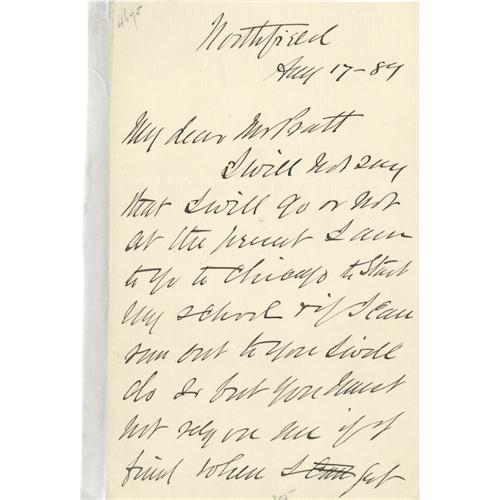 4695
Northfield
Aug 17-89
My dear Mr Pratt
I will not say
that I will go or not
at the present I am
to go to Chicago to start
my school & if I can
run out to you I will
do so but you must
not rely on me if I
find when I can get